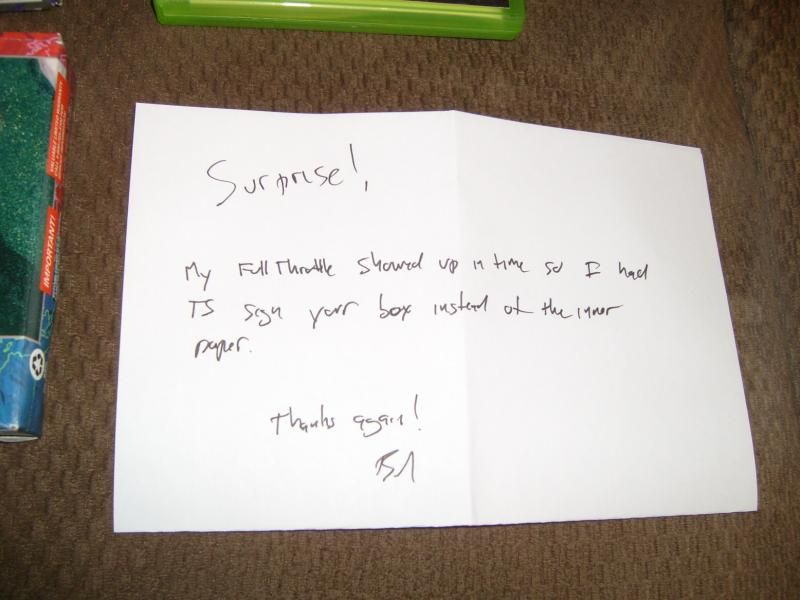 Surprise!,
My Full Throttle showed up in time so I had
TS sign your box instead of the inner
paper.
Thanks again!
IMPORTANT!